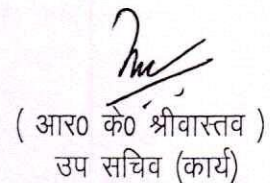 ( आर० के० श्रीवास्तव )
उप सचिव (कार्य)